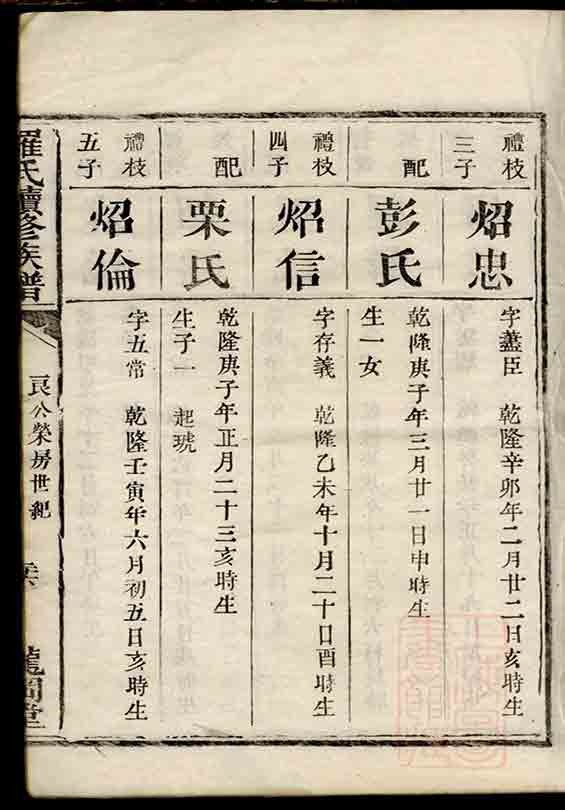 禮枝
三子
炤忠
字藎臣 乾隆辛卯年二月廿二日亥時生
配
彭氏
乾隆庚子年三月廿一日申時生
生一女
禮枝
四子
炤信
字存義 乾隆乙未年十月二十日酉時生
配
栗氏
乾隆庚子年正月二十三亥時生
生子一 起琥
禮枝
五子
炤倫
字五常 乾隆壬寅年六月初五日亥時生
羅氏續修族譜
艮公榮房世紀